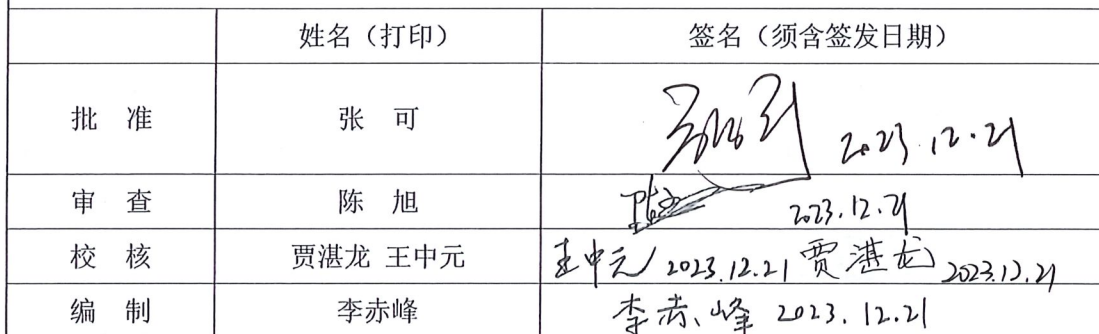 姓名（打印） 签名（须含签发日期）
批 准 张 可 2023.12.21
审 查 陈 旭 2023.12.21
校 核 贾湛龙 王中元 王中元 2023.12.21 贾湛龙 2023.12.21
编 制 李赤峰 李赤峰 2023.12.21